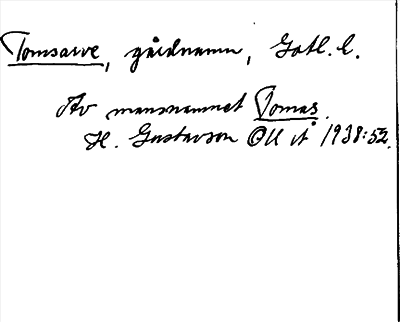 Tomsarve, gårdnamn, Gotl. l.
Av mansnamnet Tomas.
H. Gustavson OUÅ 1938:52.